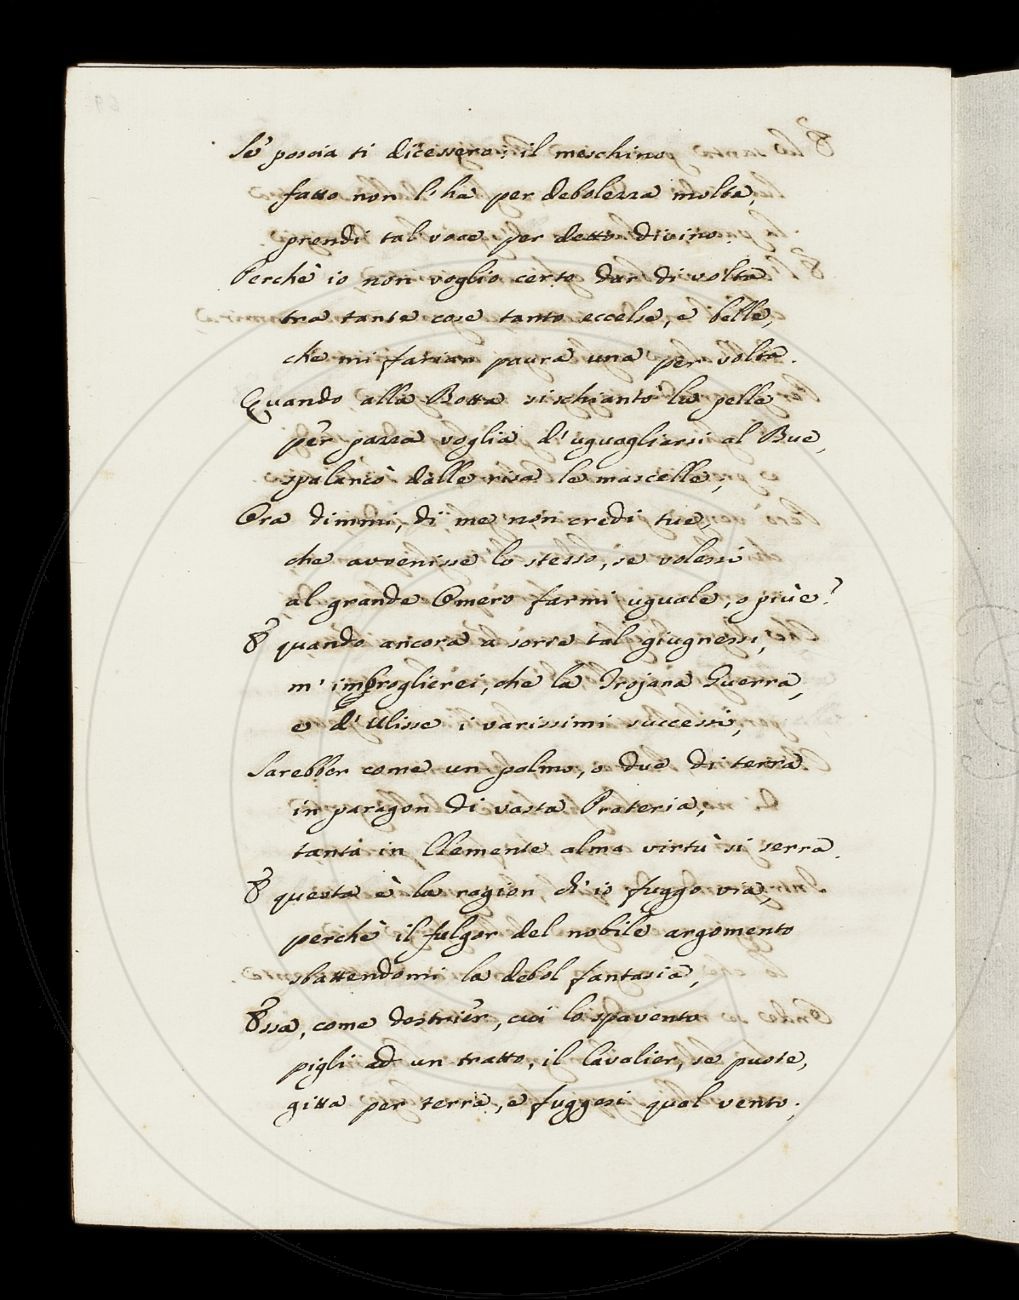 Se poscia ti dicessero: il meschino
fatto non l'ha per debolezza molta,
prendi tal voce per detto divino.
Perchè io non voglio certo dar di volta
tra tante cose tanto eccelse, e belle,
che mi farian paura una per volta.
Quando alla Botta si schiantò la pelle
per pazza voglia d'uguagliarsi al Bue,
spalancò dalle risa le mascelle,
Ora dimmi, di me non credi tue,
che avvenisse lo stesso, se volessi
al grande Omero farmi uguale, o piùe?
E quando ancora a sorte tal giugnessi,
m'imbroglierei, che la Trojana Guerra,
e d'Ulisse i varissimi successi,
Sarebber come un palmo, o due di terra
in paragon di vasta Prateria,
tanta in Clemente alma virtù si serra.
E questa è la ragion, ch'io fuggo via,
perchè il fulgor del nobile argomento
sbattendomi la debol fantasia,
Essa, come destrier, cui lo spavento
pigli ad un tratto, il Cavalier, se puote,
gitta per terra, e fuggesi qual vento;